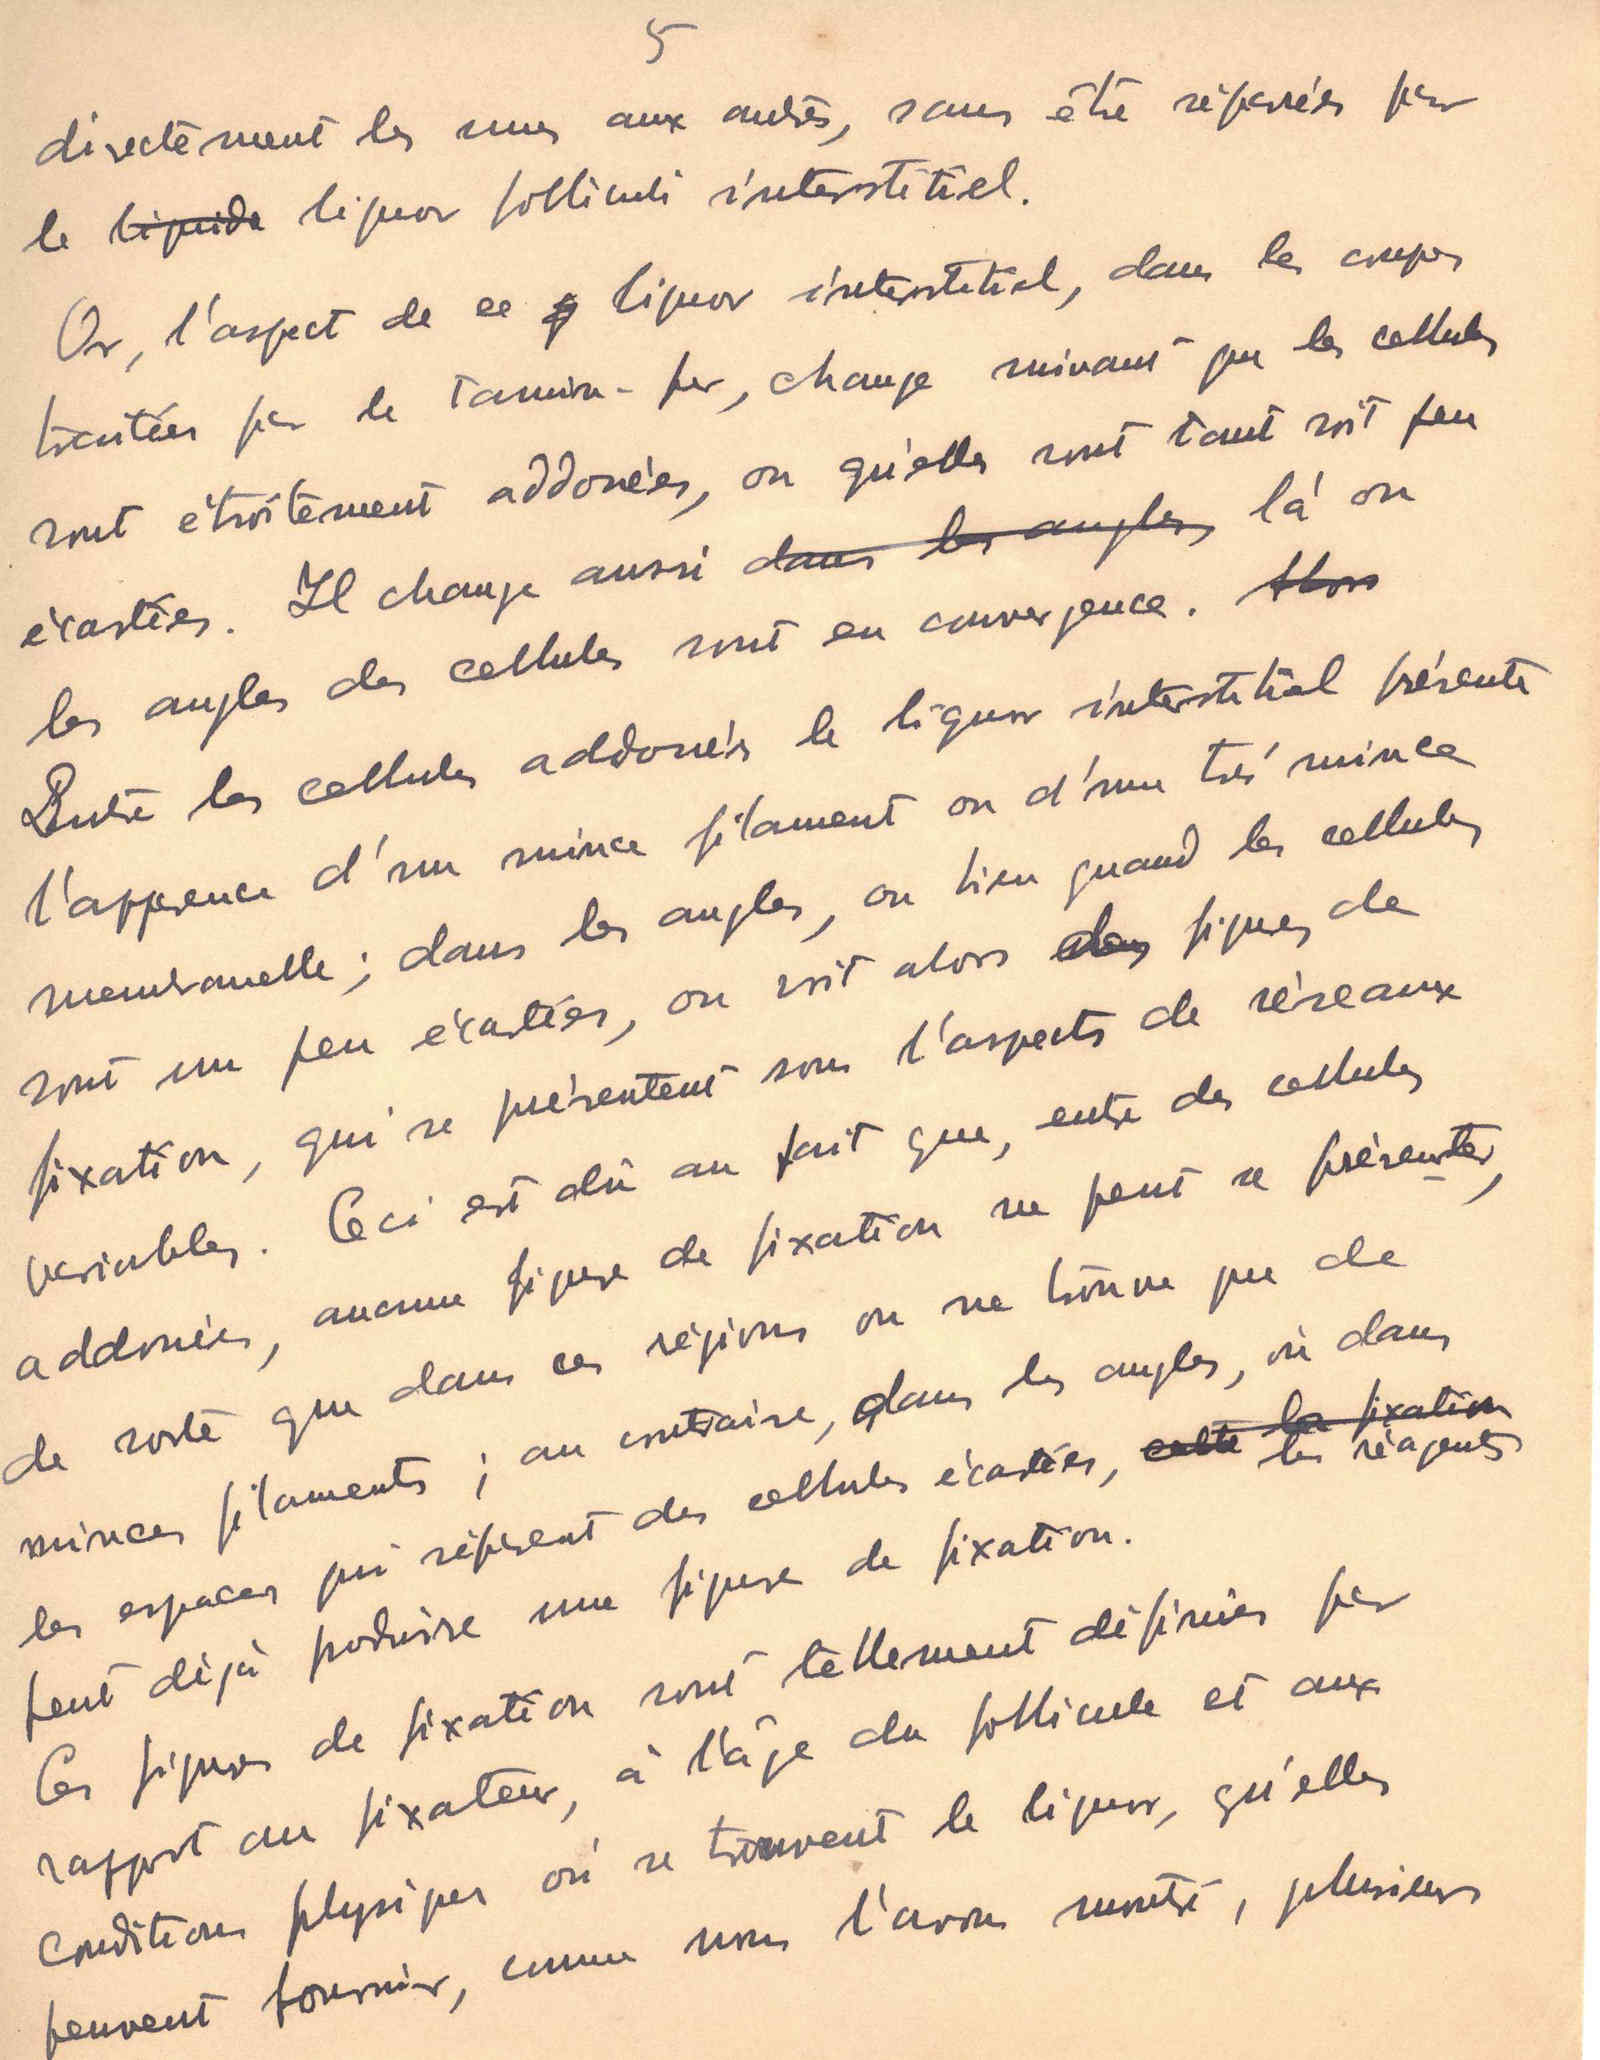 5
directement les unes aux autres, sans être séparées par
le liquide liquor folliculi interstitiel.
Or, l'aspect de ce liquor interstitial, dans les coupes
traitées par le tannin-fer, change suivant que les cellules
sont étroitement addonées, ou qu'elles sont tant soit peu
écartées. Il change aussi dans les angles là où
les angles des cellules sont en convergence. Alors
Entre les cellules addonées le liquor interstitial présente
l'apparence d'un mince filament ou d'une très mince
membranelle; dans les angles, ou bien quand les cellules
sont un peu écartées, on voit alors des figures de
fixation, qui se présentent sous l'aspects de réseaux
variables. Ceci est dû au fait que, entre des cellules
addonées, aucune figure de fixation ne peut se présenter,
de sorte que dans ces régions on ne trouve que de
minces filaments; au contraire, dans les angles, où dans
les espaces qui séparent des cellules écartées, cette la fixation
les réagents
peut déjà produire une figure de fixation.
Ces figures de fixation sont tellement définies par
rapport au fixateur, à l'âge du follicule et aux
conditions physiques où se trouvent le liquor, qu'elles
peuvent fournir, comme nous l'avons montré, plusieurs